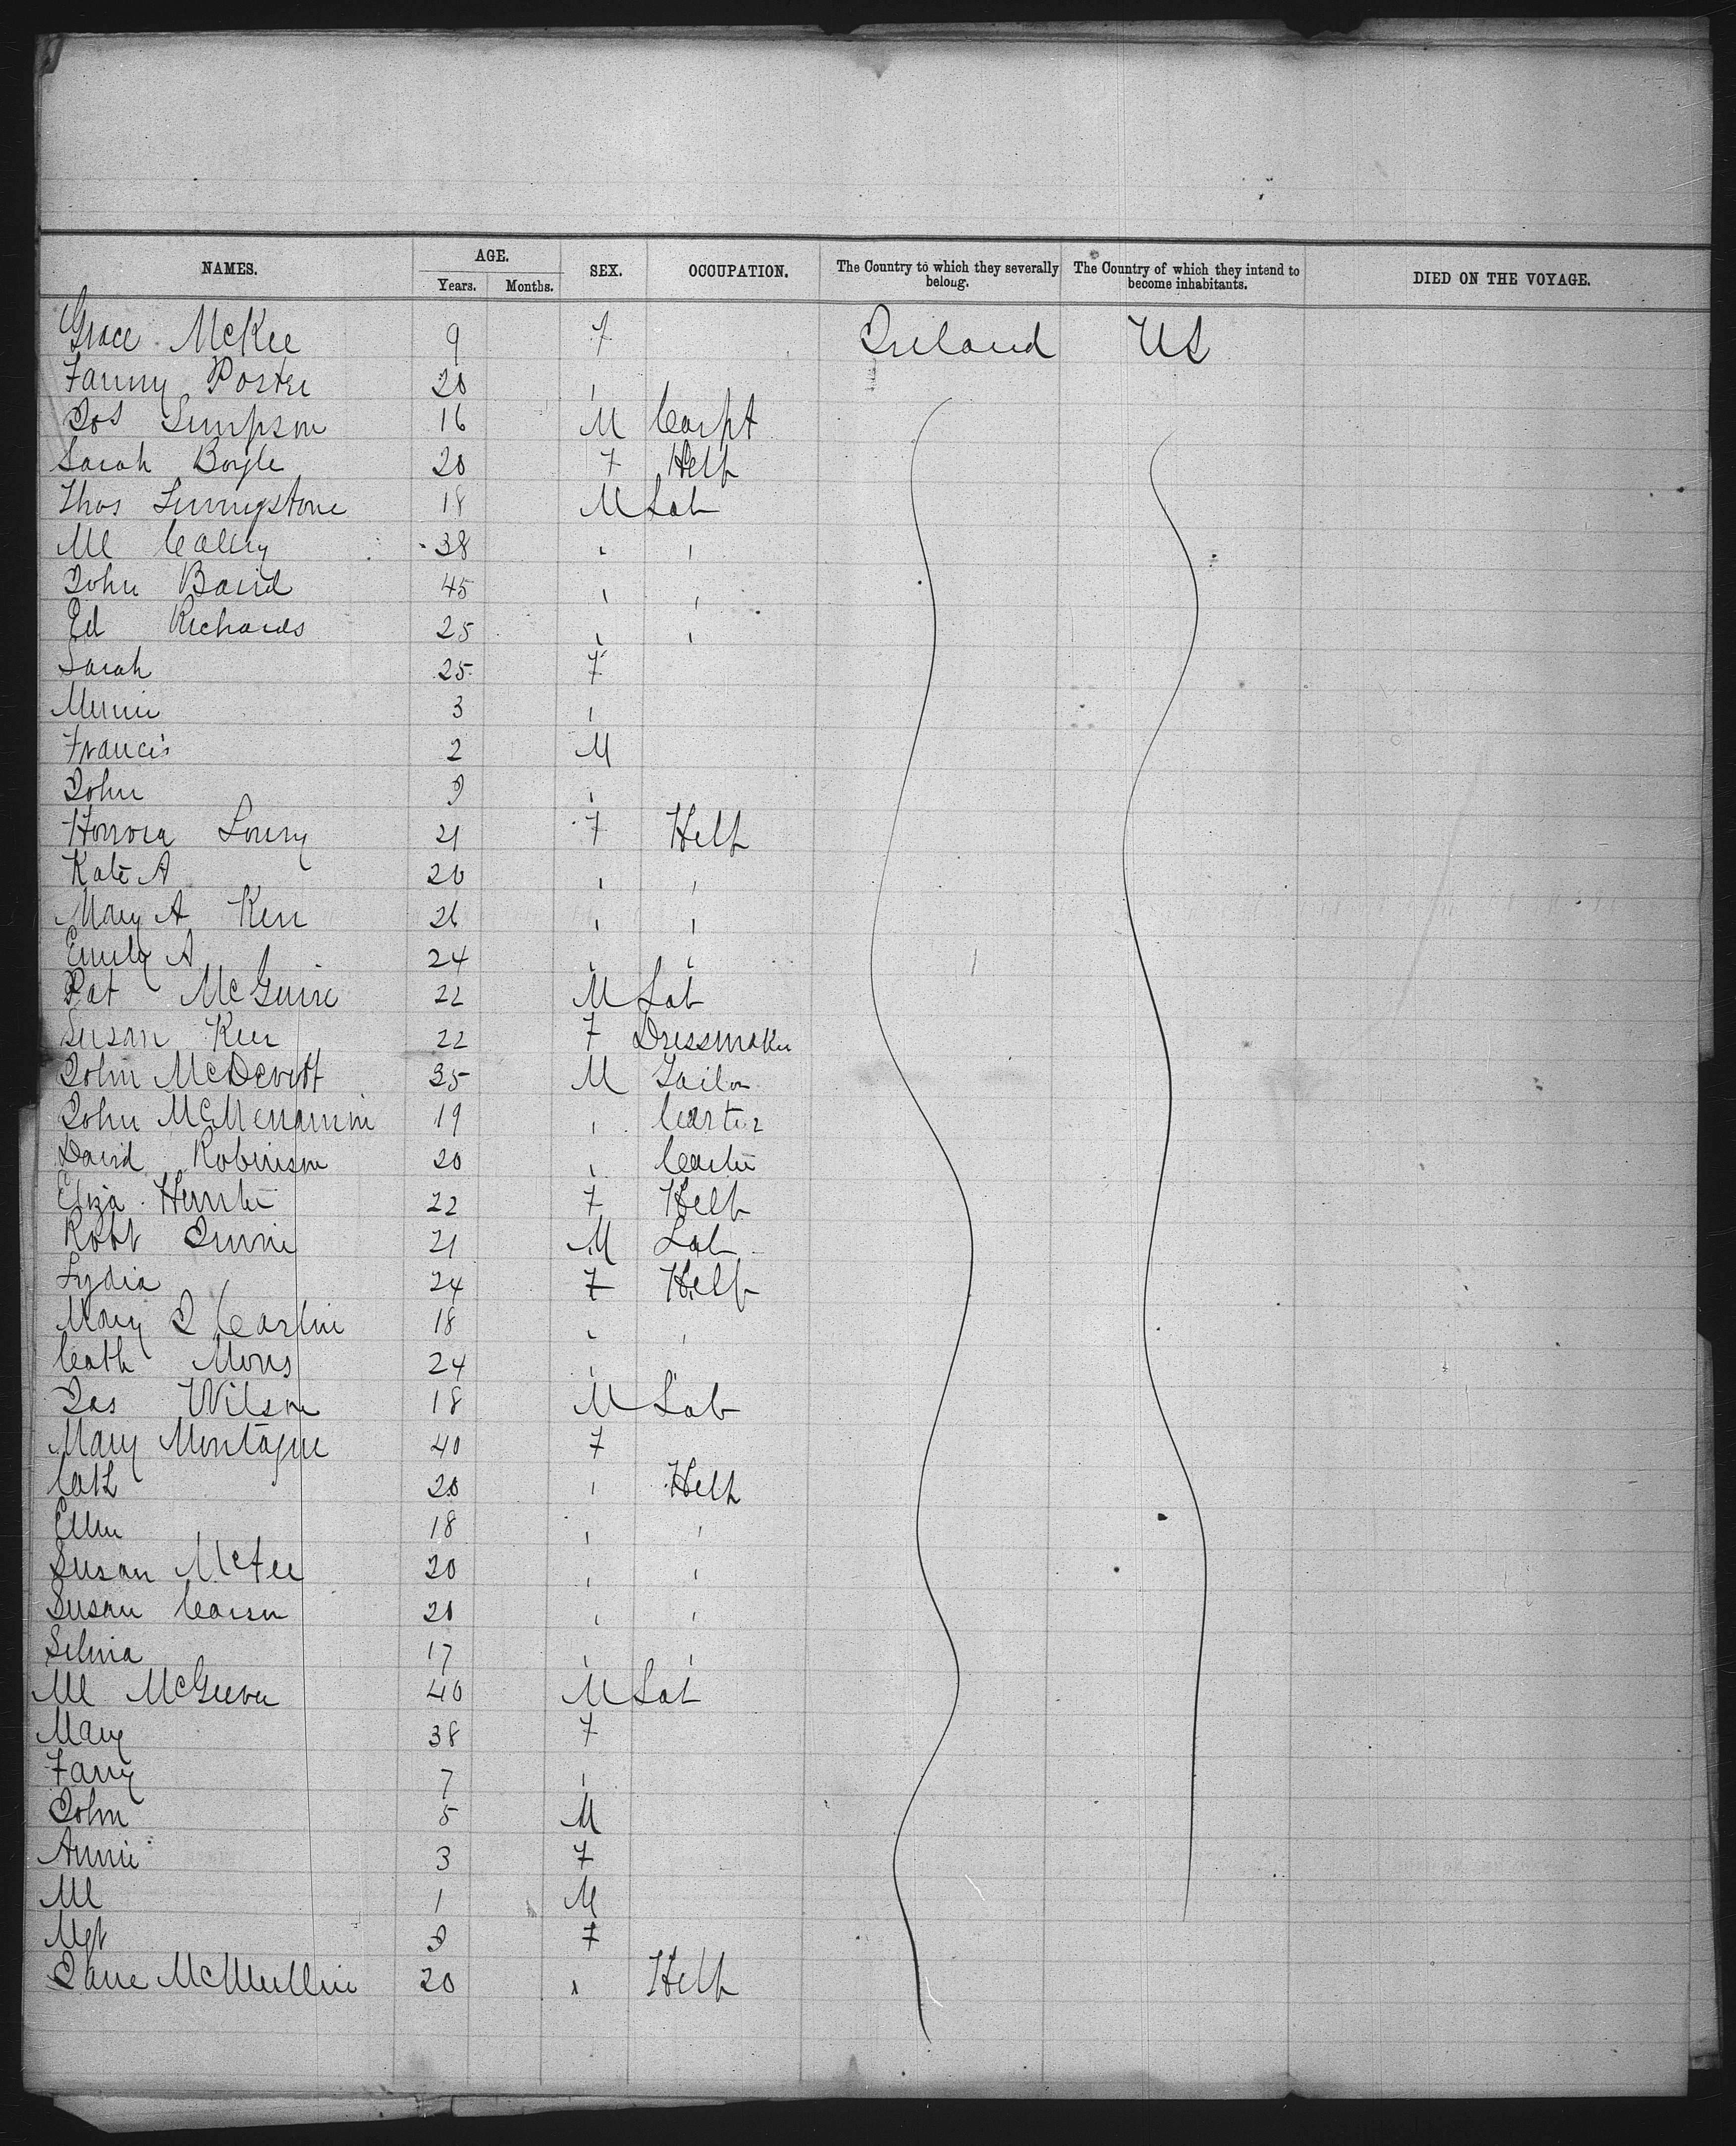 NAMES. AGE. SEX. OCCUPATION. The Country to which they severally belong. The Country of which they intend to become inhabitants. DIED ON THE VOYAGE.
Years. Months.
Grace McKee 9 F Ireland US
Fanny Porter 20 "
Jos Simpson 16 M Carpt
Sarah Boyle 20 F Help
Thos Livingstone 18 M Lab
Ml 38 " "
John Baird 45 " "
Ed Richards 25 " "
Sarah 25 F
Minnie 3 "
Francis 2 M
John "
Honora Lowry 21 F Help
Kate A 20 " "
Mary A Kerr 26 " "
Emily A 24 " "
Pat McGuire 22 M Lab
Susan Kerr 22 F Dressmaker
John McDevitt 35 M Tailor
John McMenamin 19 " Carter
David Robinson 20 " Carter
Eliza Hunter 22 F Help
Robt 21 M Lab
Lydia 24 F Help
Mary J Carlin 18 " "
Cath 24 "
Jas Wilson 18 M Lab
Mary Montague 40 F
Cath 20 " Help
Ellen 18 " "
Susan McFee 20 " "
Susan Carson 20 " "
Selina 17 " "
Ml McGeever 40 M Lab
Mary 38 F
Fany 7 "
John 5 M
Annie 3 F
Ml 1 M
Mgt F
Jane McMullin 20 " Help